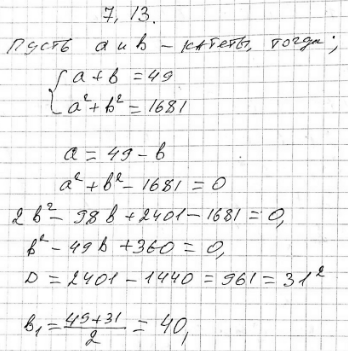 7,13.
Пусть a и b - катеты, тогда;
{ a + b = 49
a² + b² = 1681
a = 49 - b
a² + b² - 1681 = 0
2b² - 98b + 2401 - 1681 = 0,
b² - 49b + 360 = 0,
D = 2401 - 1440 = 961 = 31²
b₁ = (49+31)/2 = 40,